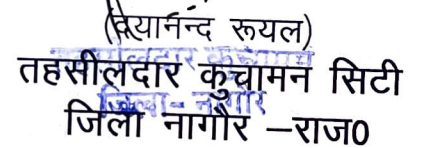 (दयानन्द रूयल)
तहसीलदार कुचामन सिटी
जिला नागौर –राज0